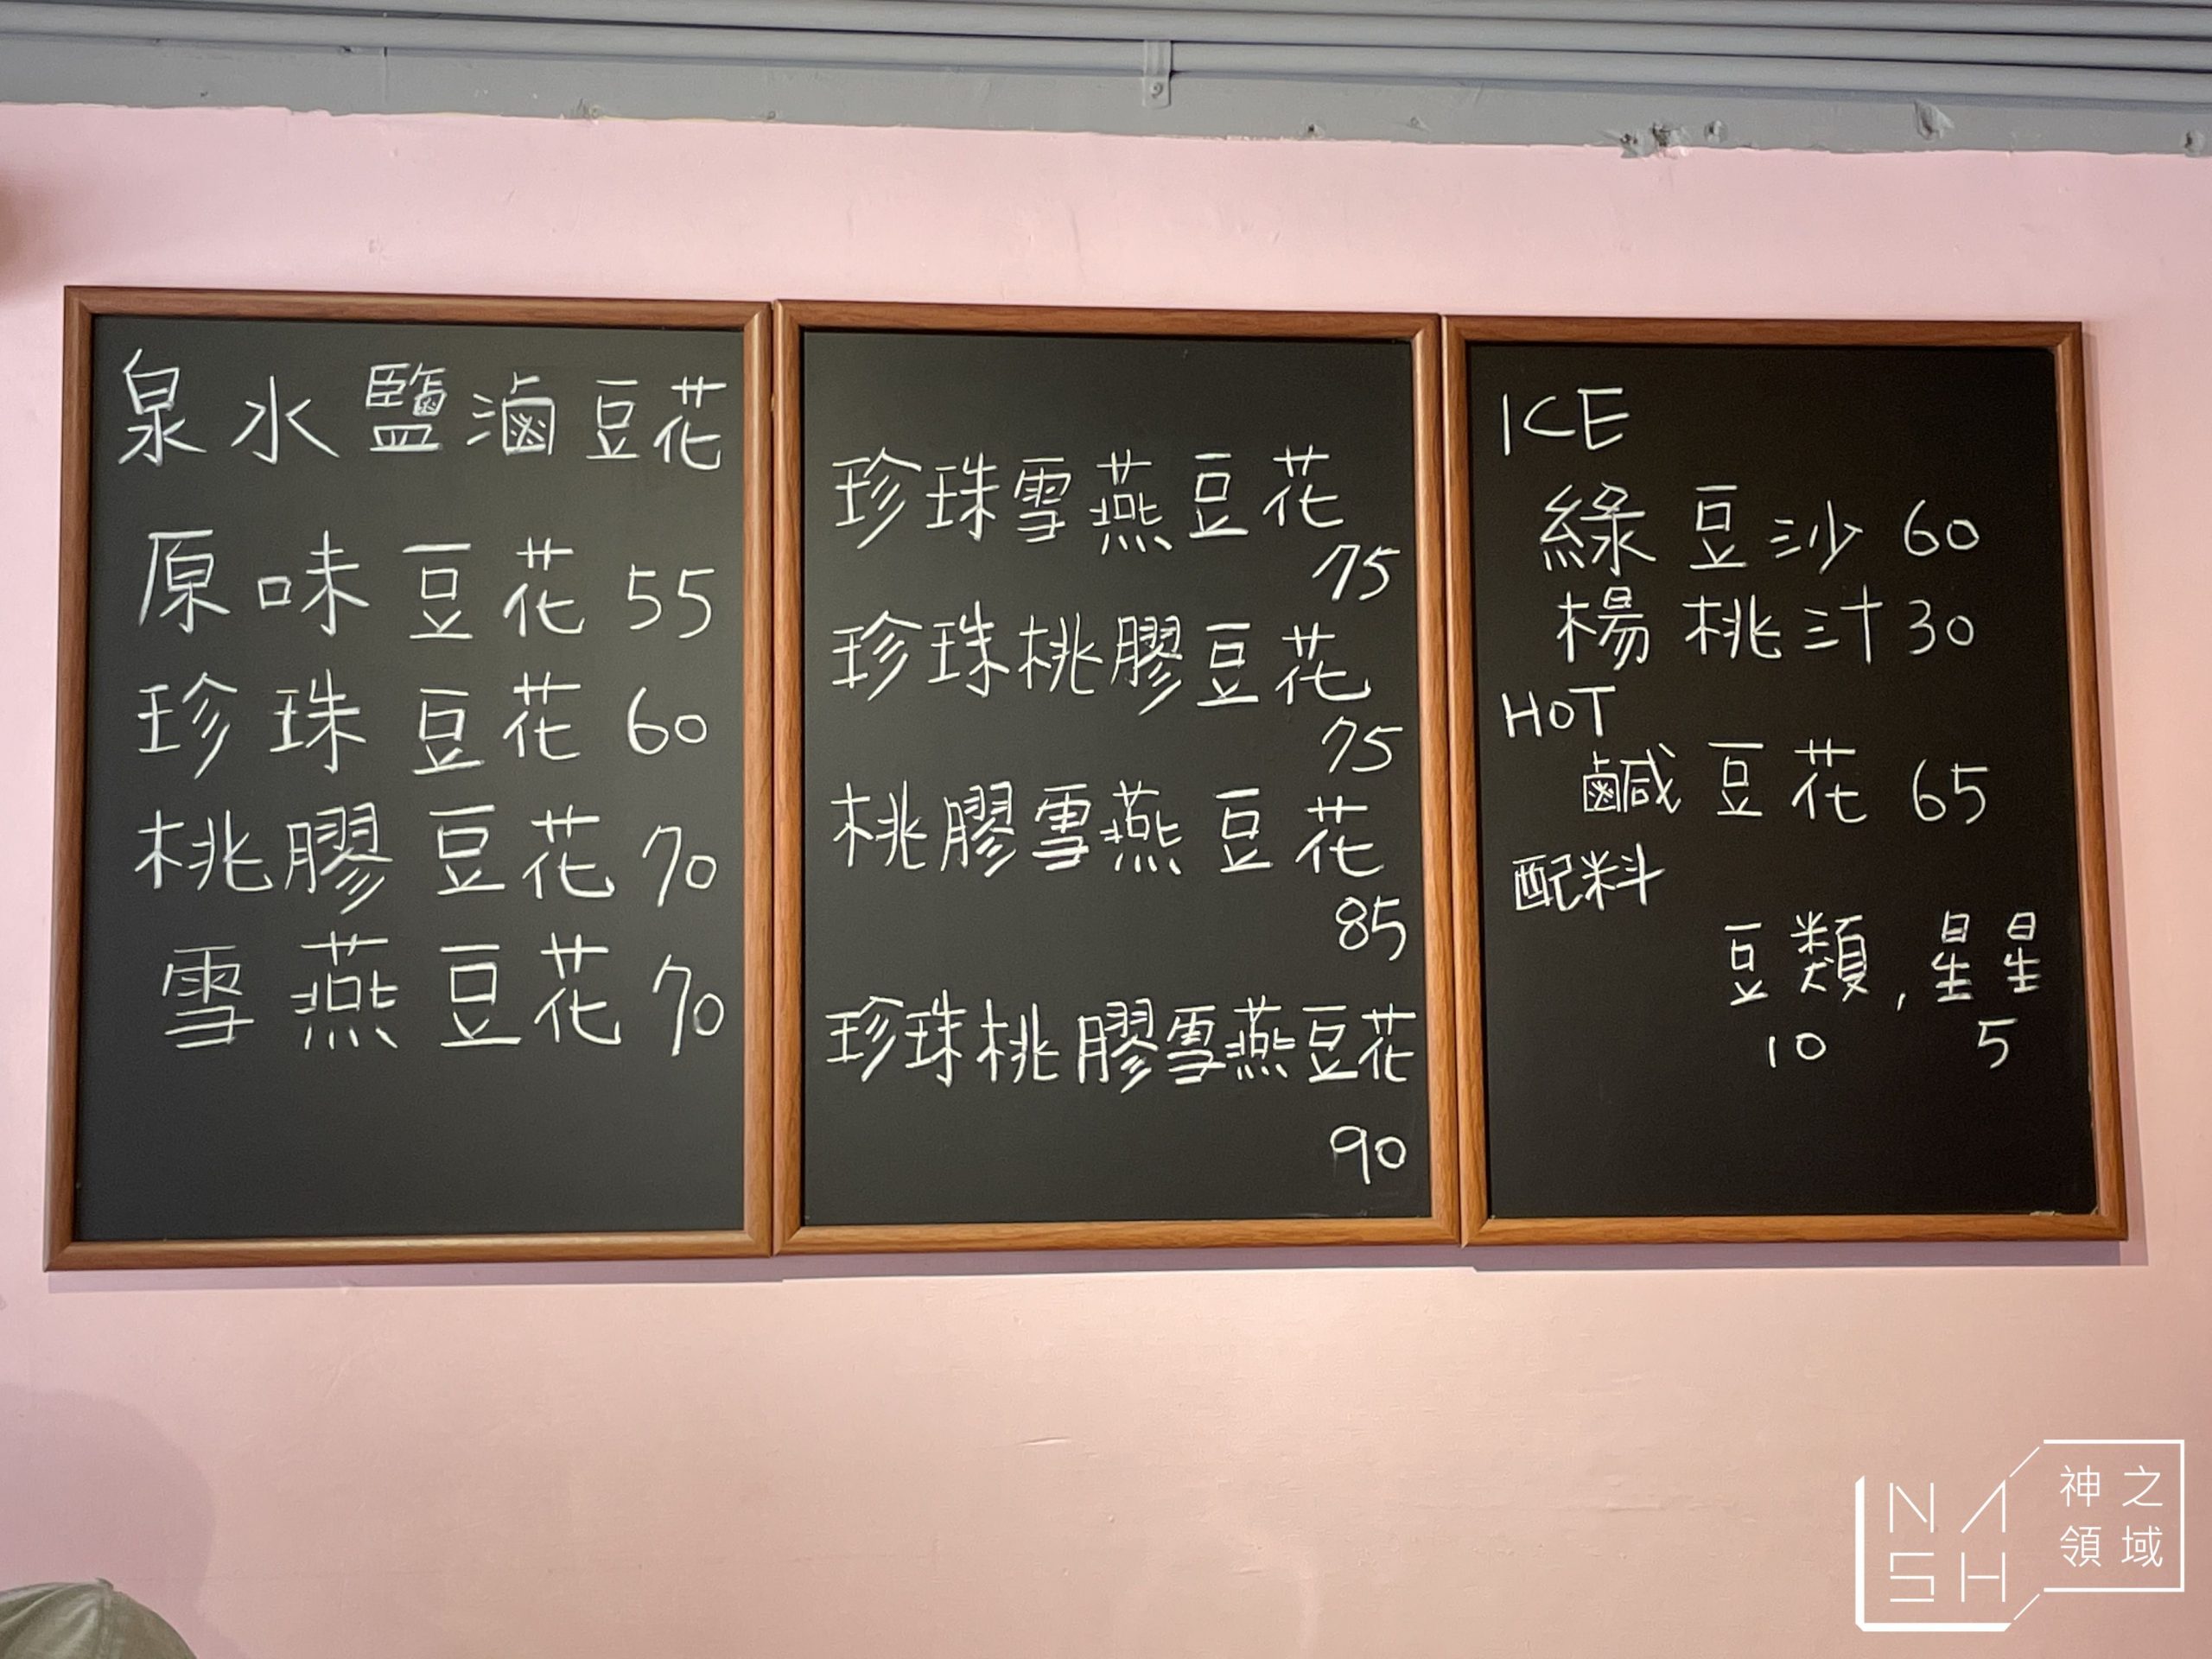 泉水鹽滷豆花
原味豆花 55
珍珠豆花 60
桃膠豆花 70
雪燕豆花 70
珍珠雪燕豆花
75
珍珠桃膠豆花
75
桃膠雪燕豆花
85
珍珠桃膠雪燕豆花
90
ICE
綠豆沙 60
楊桃汁 30
HOT
鹹豆花 65
配料
豆類, 星星
10 5
NASH
神之
領域